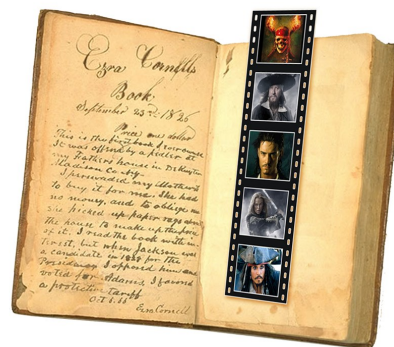 Ezra Cornell's
Book
September 23rd 1826
Price one dollar
This is the first book I ever owned
It was offered by a pedler at
my Father's house in DeRuyter
Madison Co. N.Y.
I persuaded my Mother
to buy it for me She had
no money, and to oblige me
she picked up paper rags about
the house to make up the price
of it. I read the book with in-
terest, but when Jackson was
a candidate in 1828 for the
Presidency I opposed him and
voted for Adams I favored
a protective tariff
Ezra Cornell